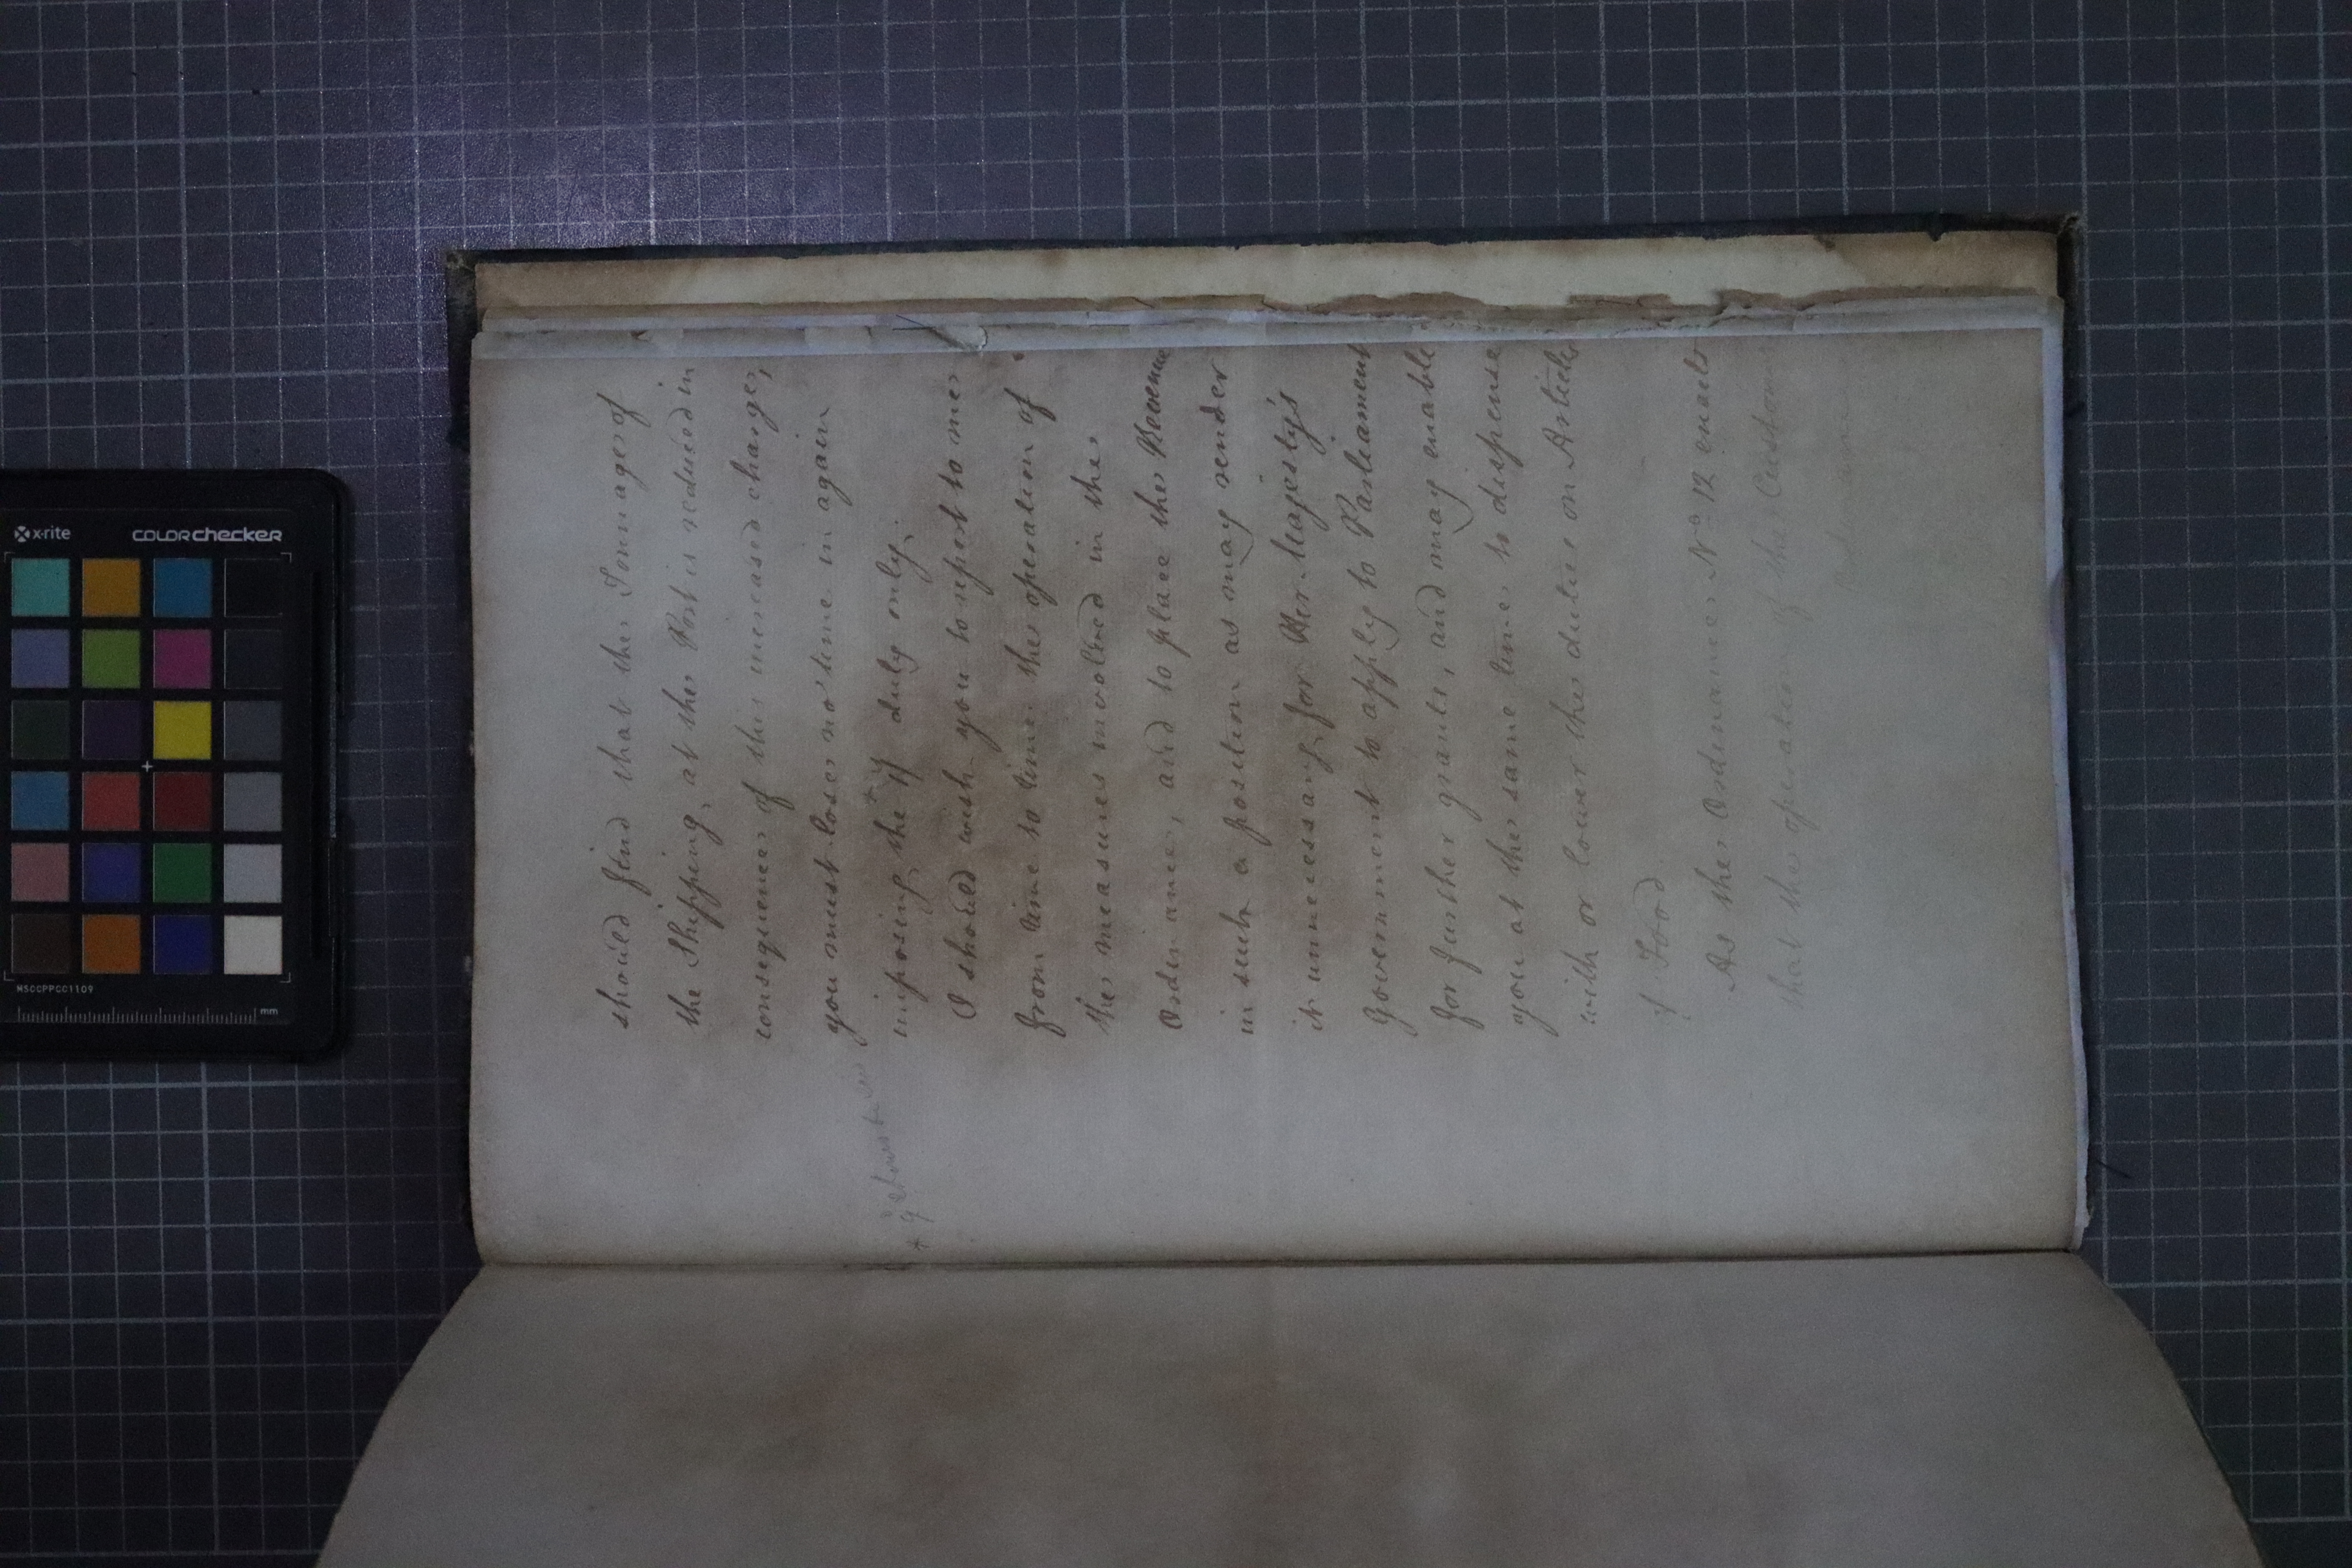 should find that the Tonnage of
the Shipping, at the Port is reduced in
consequence of this increased charge,
you must lose no time in again
imposing the * 4d duty only.
I should wish you to report to me
from time to time the operation of
the measures involved in the
Ordinance, and to place the Revenue
in such a position as may render
it unnecessary for Her Majesty's
Government to apply to Parliament
for further grants, and may enable
you at the same time to dispense
with or lower the duties on Articles
of Food.
As the Ordinance No 12 enacts
that the operation of the Customs
*
x-rite
colorchecker
NSCCPPCC1109
mm